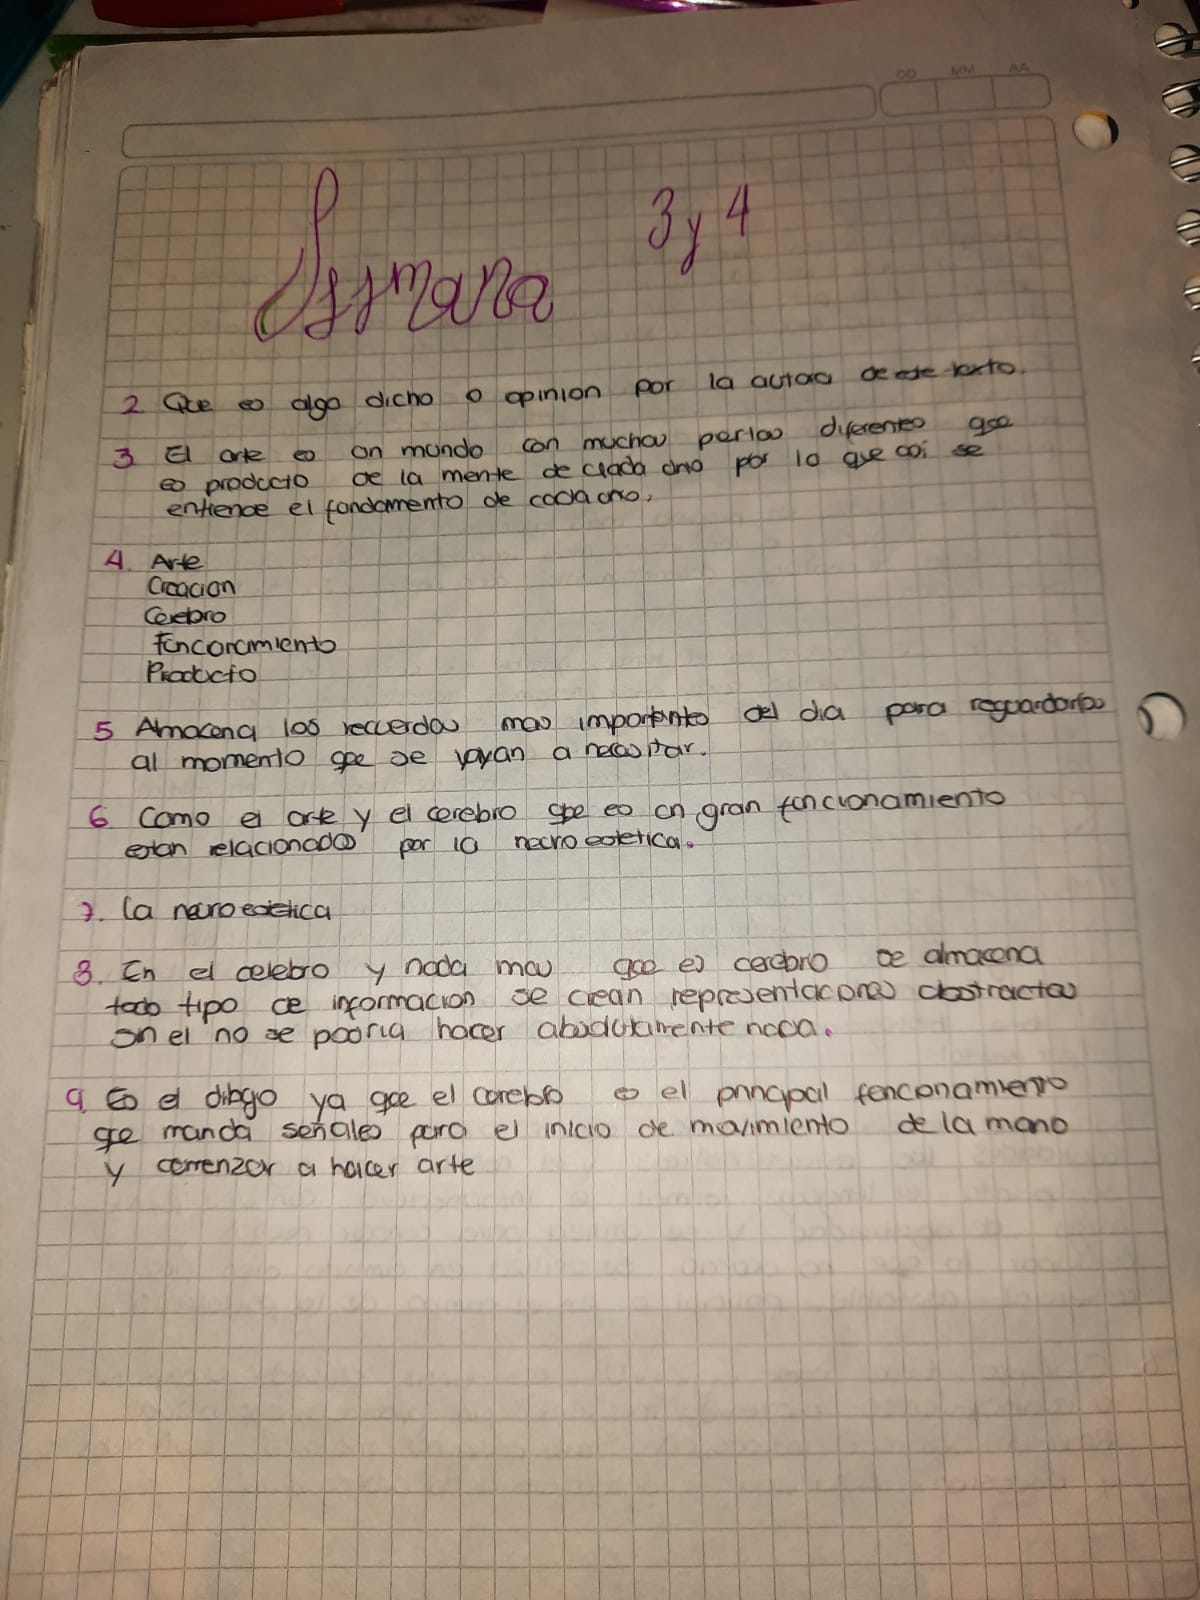 DD MM AA
Semana 3 y 4
2 Que es algo dicho o opinion por la autora de este texto.
3 El arte es un mundo con muchas partes diferentes que
es producto de la mente de cada uno por lo que asi se
entiende el fundamento de cada uno.
4. Arte
Creacion
Cerebro
Funcoramiento
Producto
5 Almacena los recuerdos mas importantes del dia para
al momento que se vayan a necesitar.
6 Como el arte y el cerebro que es un gran funcionamiento
estan relacionados por la neuro estetica.
7. La neuroestetica
8. En el celebro y nada mas que el cerebro se almacena
todo tipo de informacion se crean representacones abstractas
sin el no se podria hacer absolutamente nada.
9. Es el dibujo ya que el cerebro es el principal fenconamiento
que manda señales para el inicio de movimiento de la mano
y comenzar a hacer arte